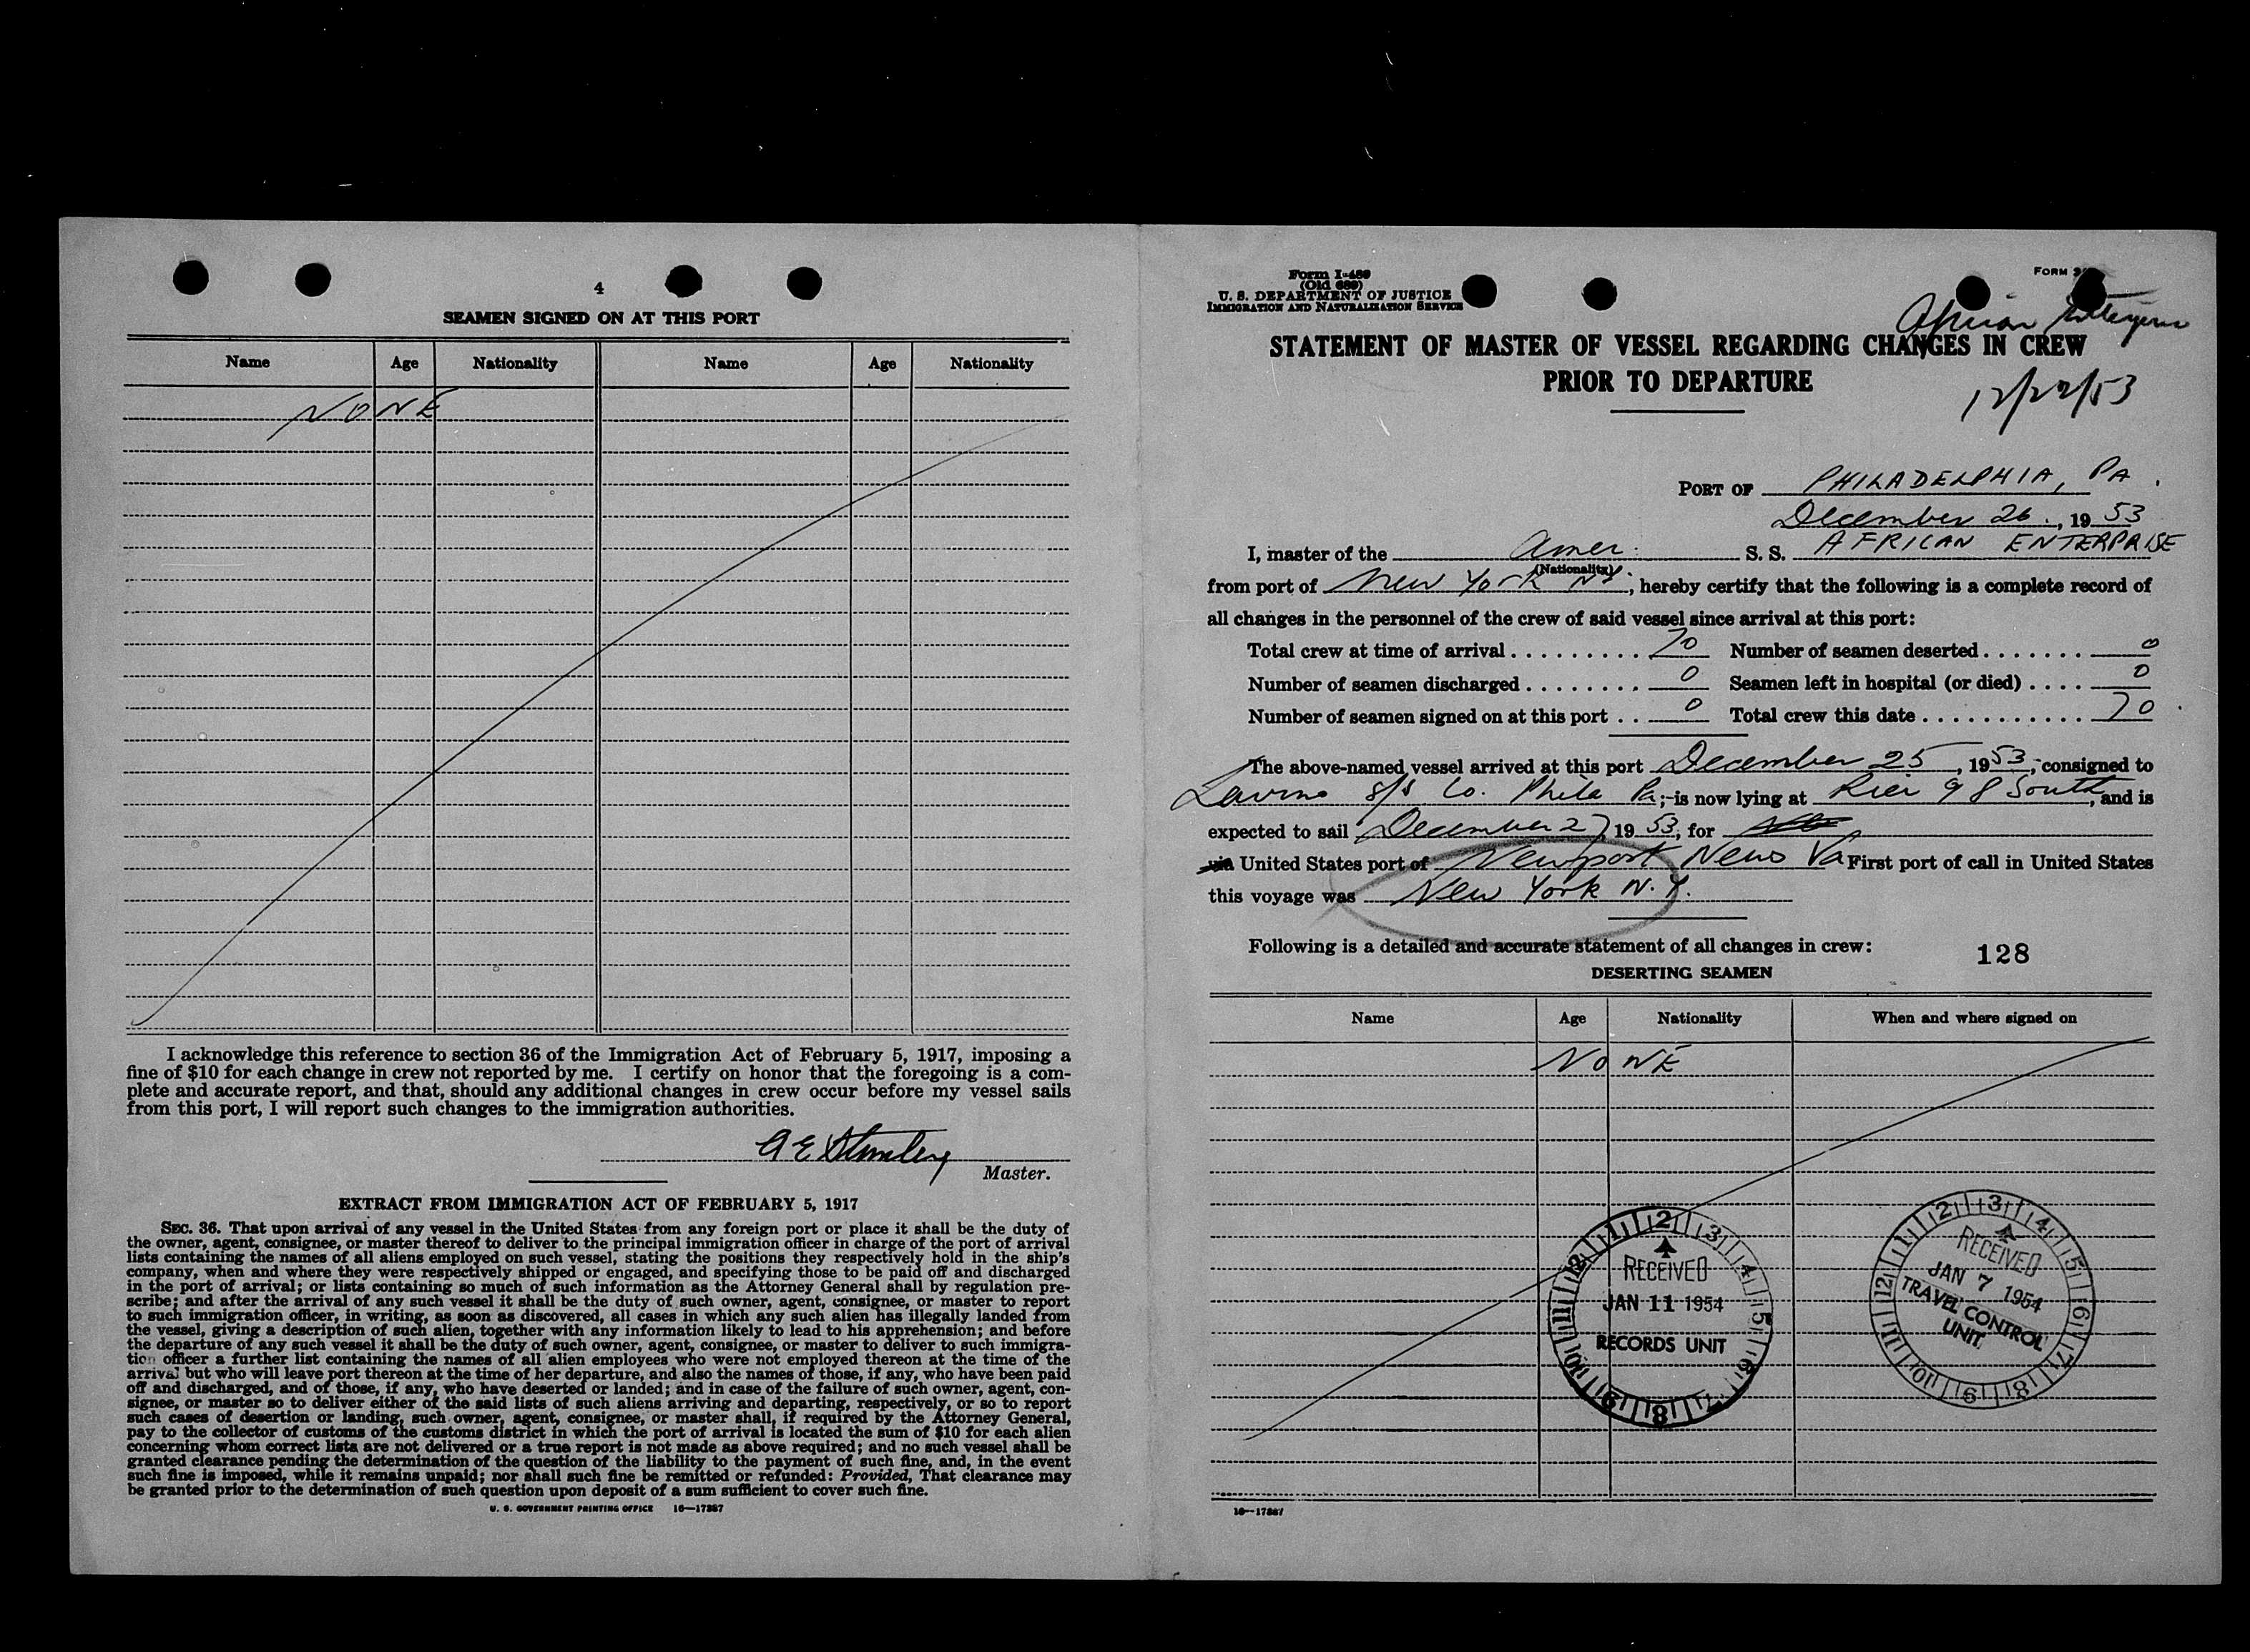 4
SEAMEN SIGNED ON AT THIS PORT
Name Age Nationality Name Age Nationality
NONE
I acknowledge this reference to section 36 of the Immigration Act of February 5, 1917, imposing a
fine of $10 for each change in crew not reported by me. I certify on honor that the foregoing is a com-
plete and accurate report, and that, should any additional changes in crew occur before my vessel sails
from this port, I will report such changes to the immigration authorities.
A E Stanley
Master.
EXTRACT FROM IMMIGRATION ACT OF FEBRUARY 5, 1917
SEC. 36. That upon arrival of any vessel in the United States from any foreign port or place it shall be the duty of
the owner, agent, consignee, or master thereof to deliver to the principal immigration officer in charge of the port of arrival
lists containing the names of all aliens employed on such vessel, stating the positions they respectively hold in the ship's
company, when and where they were respectively shipped or engaged, and specifying those to be paid off and discharged
in the port of arrival; or lists containing so much of such information as the Attorney General shall by regulation pre-
scribe; and after the arrival of any such vessel it shall be the duty of such owner, agent, consignee, or master to report
to such immigration officer, in writing, as soon as discovered, all cases in which any such alien has illegally landed from
the vessel, giving a description of such alien, together with any information likely to lead to his apprehension; and before
the departure of any such vessel it shall be the duty of such owner, agent, consignee, or master to deliver to such immigra-
tion officer a further list containing the names of all alien employees who were not employed thereon at the time of the
arrival but who will leave port thereon at the time of her departure, and also the names of those, if any, who have been paid
off and discharged, and of those, if any, who have deserted or landed; and in case of the failure of such owner, agent, con-
signee, or master so to deliver either of the said lists of such aliens arriving and departing, respectively, or so to report
such cases of desertion or landing, such owner, agent, consignee, or master shall, if required by the Attorney General,
pay to the collector of customs of the customs district in which the port of arrival is located the sum of $10 for each alien
concerning whom correct lists are not delivered or a true report is not made as above required; and no such vessel shall be
granted clearance pending the determination of the question of the liability to the payment of such fine, and, in the event
such fine is imposed, while it remains unpaid; nor shall such fine be remitted or refunded: Provided, That clearance may
be granted prior to the determination of such question upon deposit of a sum sufficient to cover such fine.
U. S. GOVERNMENT PRINTING OFFICE 16—17287
Form I-489
(Old 689)
U. S. DEPARTMENT OF JUSTICE
IMMIGRATION AND NATURALIZATION SERVICE
FORM
African Enterprise
STATEMENT OF MASTER OF VESSEL REGARDING CHANGES IN CREW
PRIOR TO DEPARTURE
12/22/53
PORT OF PHILADELPHIA, PA.
December 26, 1953
I, master of the Amer. S. S. AFRICAN ENTERPRISE
(Nationality)
from port of New York NY; hereby certify that the following is a complete record of
all changes in the personnel of the crew of said vessel since arrival at this port:
Total crew at time of arrival 70 Number of seamen deserted 0
Number of seamen discharged 0 Seamen left in hospital (or died) 0
Number of seamen signed on at this port 0 Total crew this date 70
The above-named vessel arrived at this port December 25, 1953, consigned to
Lavino S/S Co. Phila Pa; is now lying at Pier 98 South, and is
expected to sail December 27, 1953, for
via United States port of Newport News Va First port of call in United States
this voyage was New York N.Y.
Following is a detailed and accurate statement of all changes in crew:
128
DESERTING SEAMEN
Name Age Nationality When and where signed on
NONE
RECEIVED
JAN 11 1954
RECORDS UNIT
RECEIVED
JAN 7 1954
TRAVEL CONTROL
UNIT
16—17287